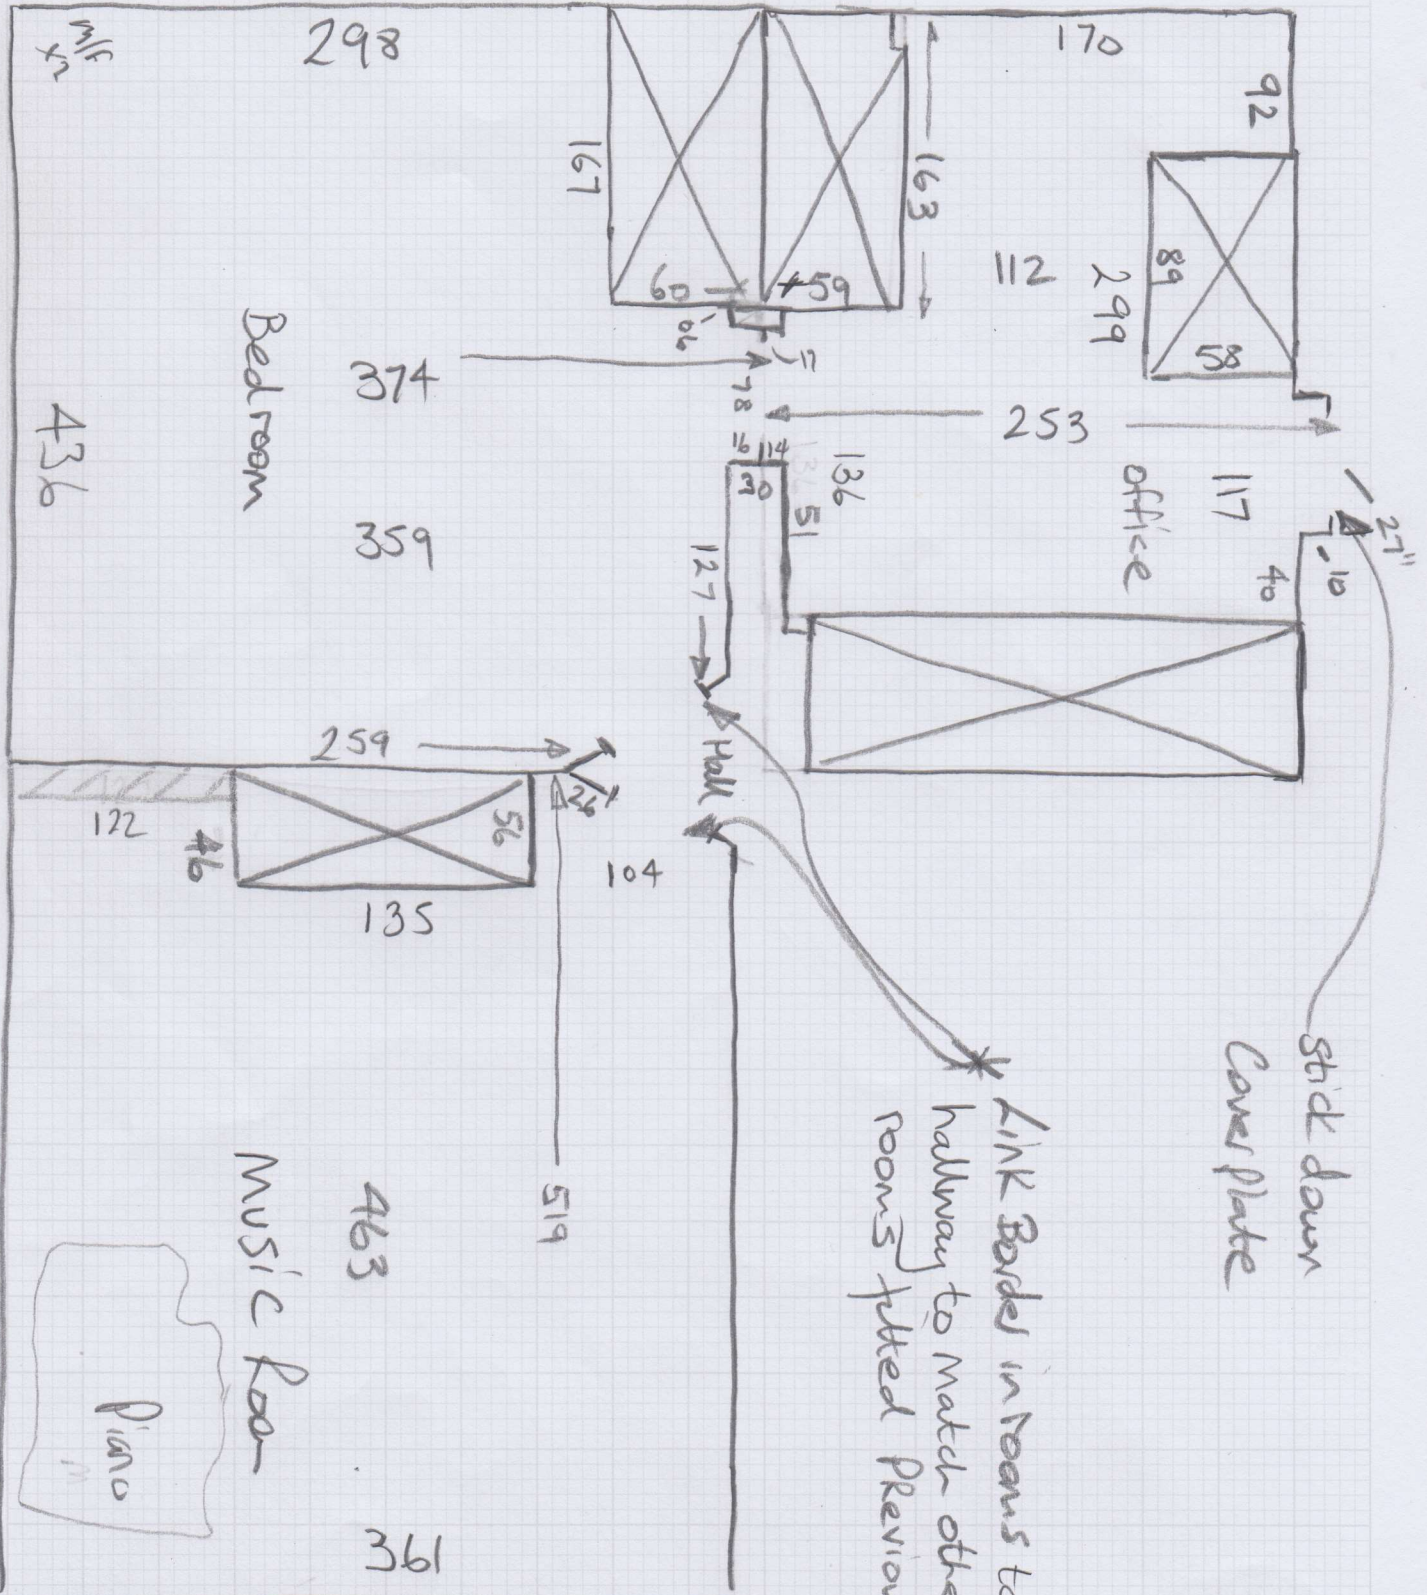 M/F
x2
298
170
92
167
163
112
299
89
58
60
+59
06
17
374
78
253
Bedroom
436
16
114
30
136
51
117
office
27"
10
40
359
127
Hall
259
26"
122
46
56
135
104
519
Music Room
463
Piano
361
stick down
Cover Plate
Link Border in rooms to
hallway to match othe
rooms fitted Previou